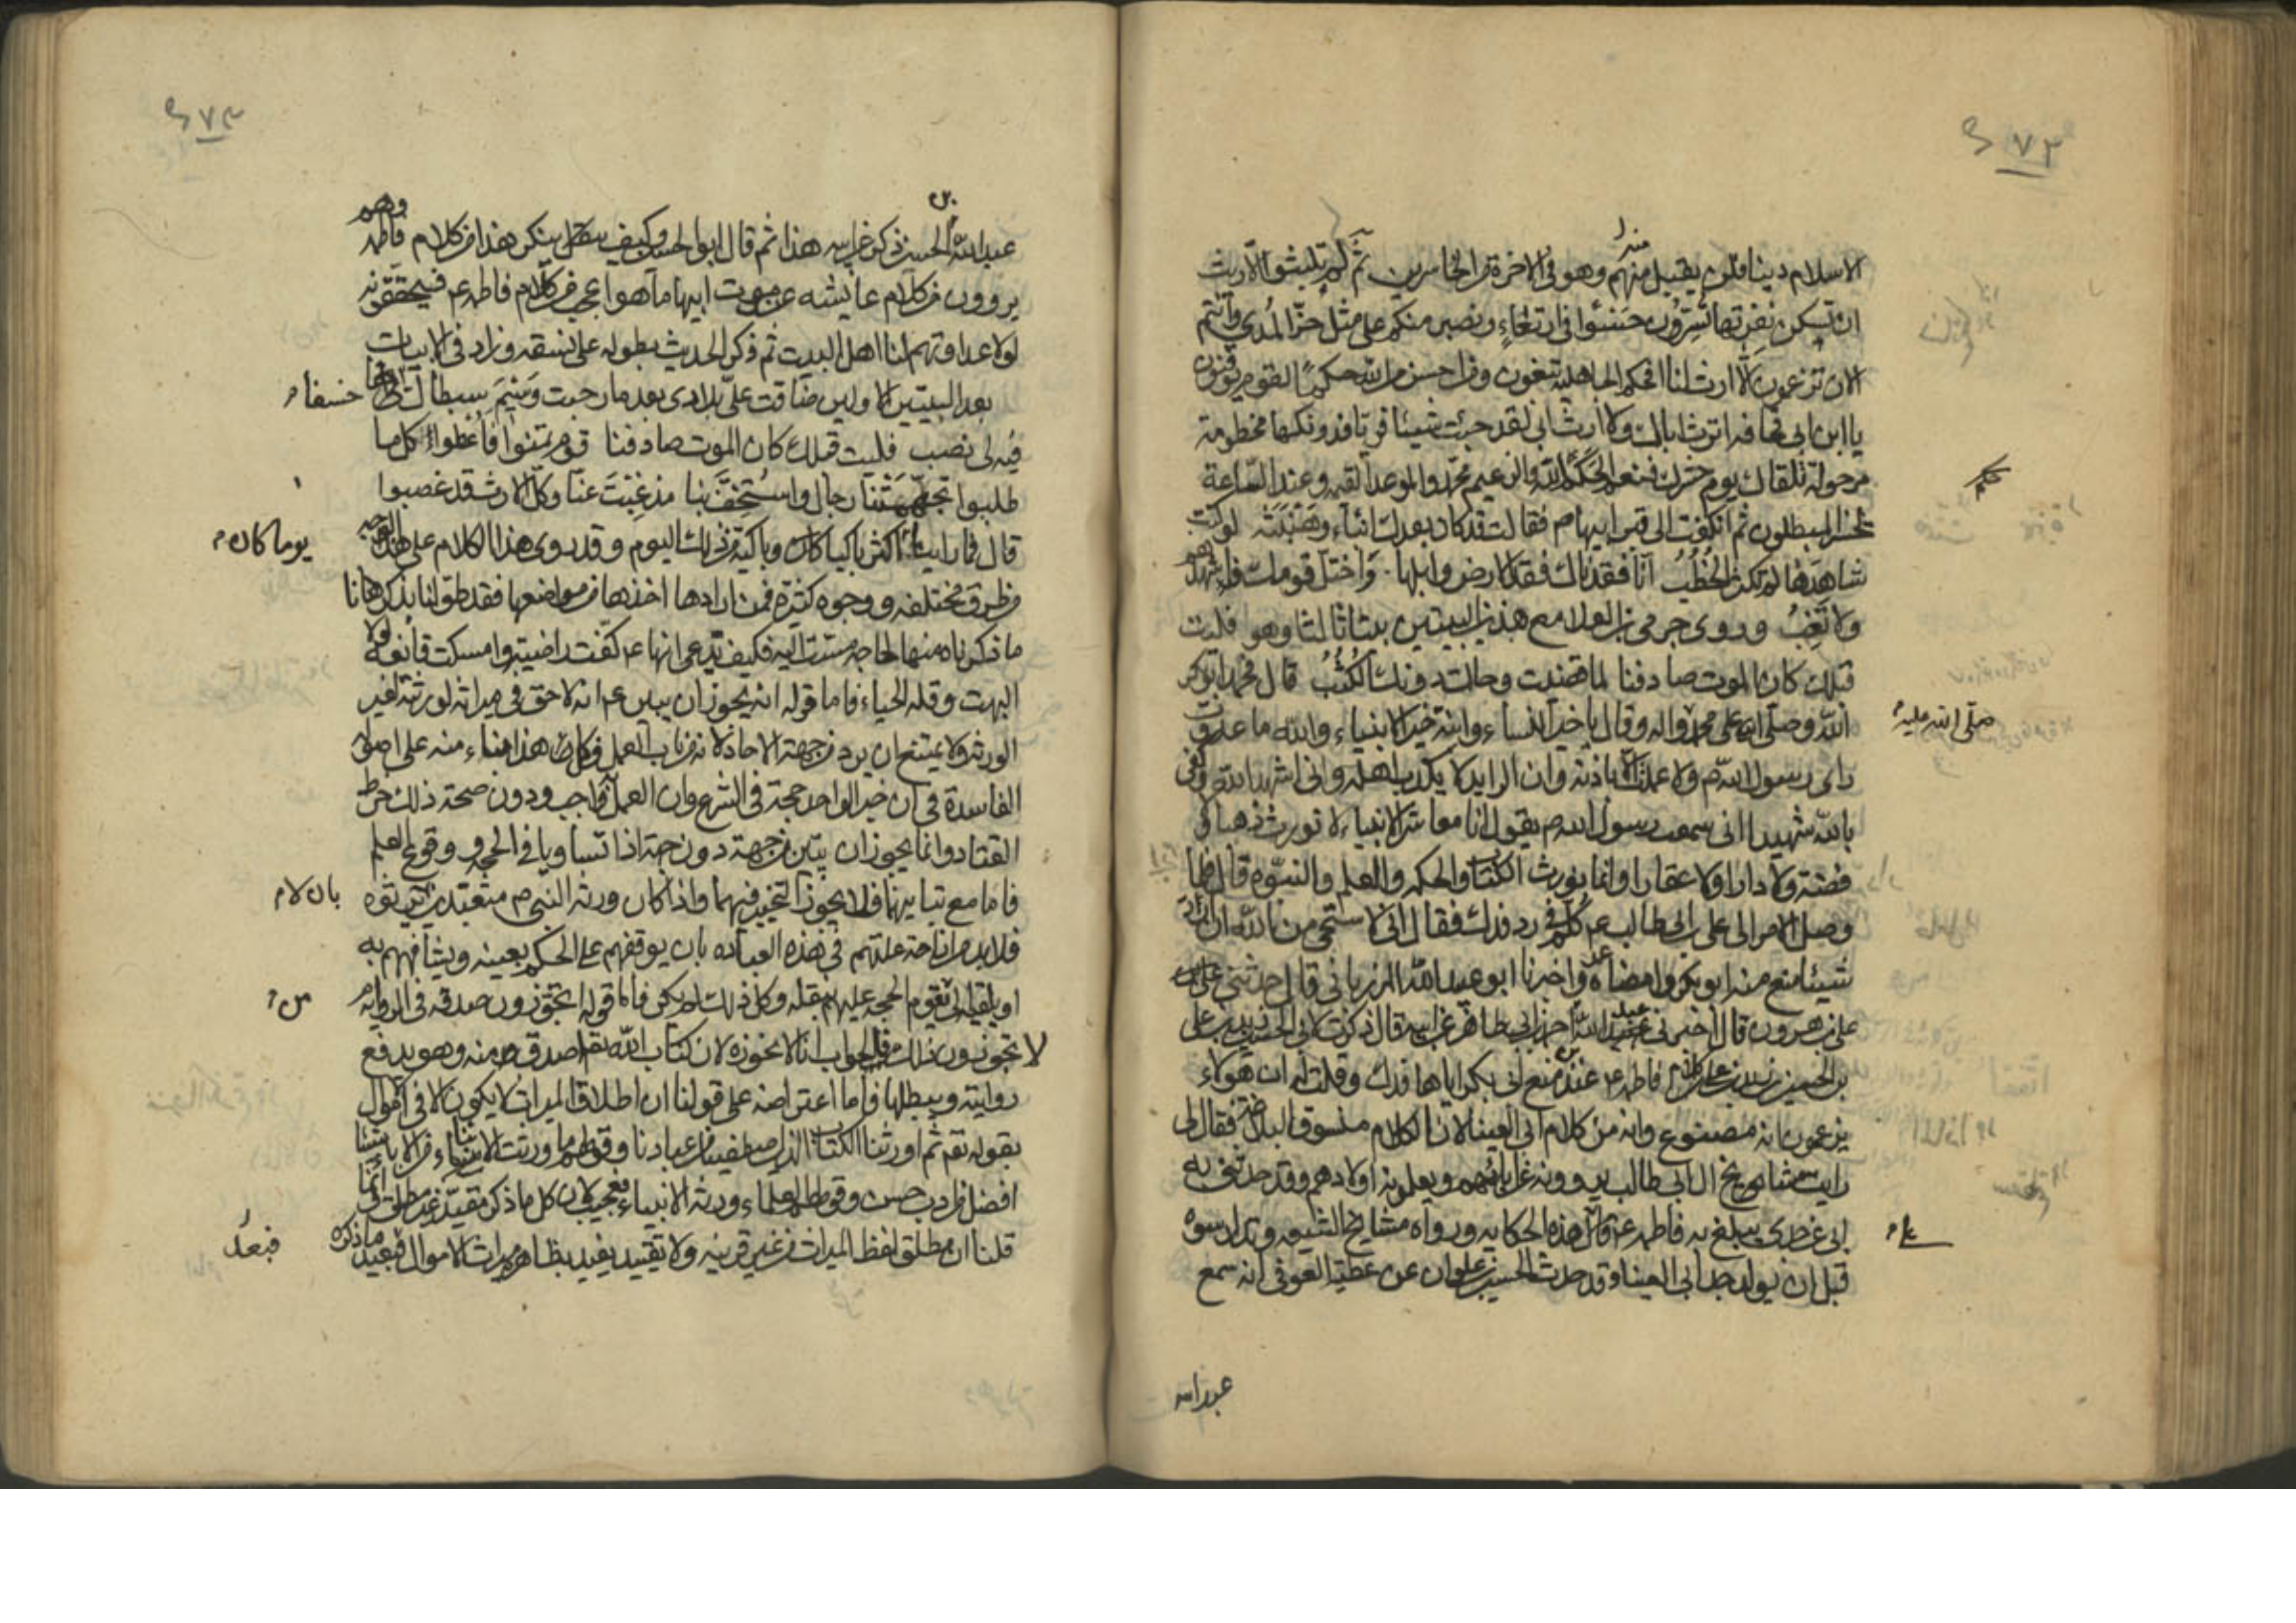 الاسلام دينا فلن يقبل منهم وهو فى الاخرة من الخاسرين ثم لم تلبثوا الا ريث
ان تسكن نفرتها تسرون حسوا فى ارتغاء ونصبر منكم على مثل حز المدى وانتم
الان تزعمون الا ارث لنا افحكم الجاهلية تبغون ومن احسن من الله حكما لقوم يوقنون
يا ابن ابى قحافه اترث اباك ولا ارث ابى لقد جئت شيئا فريا فدونكها مخطومة
مرحولة تلقاك يوم حشرك فنعم الحكم الله والزعيم محمد والموعد القيمه وعند الساعة
يخسر المبطلون ثم انكفت الى قبر ابيها م فقالت قد كان بعدك انباء وهنبثه لو كنت
شاهدها لم تكثر الخطب انا فقدناك فقد الارض وابلها واختل قومك فاشهدهم
ولا تغب وروى جرمى بن العلا مع هذين البيتين بيتا ثالثا وهو فليت
قبلك كان الموت صادفنا لما قضيت وحالت دونك الكثب قال فحمد ابو بكر
الله وصلى على محمد واله وقال يا خير النساء وابنة خير الانبياء والله ما عدوت
راى رسول الله م ولا عملت الا باذنه وان الرايد لا يكذب اهله وانى اشهد الله وكفى
بالله شهيدا انى سمعت رسول الله م يقول انا معاشر الانبياء لا نورث ذهبا ولا
فضة ولا دارا ولا عقارا وانما نورث الكتاب والحكمه والعلم والنبوه قال فلما
وصل الامر الى على بن ابى طالب ع كلم فى رد فدك فقال انى لاستحى من الله ان ارد
شيئا منع منه ابو بكر وامضاه عمر واخبرنا ابو عبد الله المرزبانى قال حدثنى على بن
على بن هرون قال اخبرنى عبيد الله بن احمد بن ابى طاهر عن ابيه قال ذكرت لابى الحسين زيد بن على
بن الحسين بن زيد بن على كلام فاطمه ع عند منع ابى بكر اياها فدك وقلت له ان هؤلاء
يزعمون انه مصنوع وانه من كلام ابى العينا لان الكلام منسوق البلاغة فقال لى
رايت مشايخ ال ابى طالب يروونه عن ابائهم ويعلمونه اولادهم وقد حدثنى به
ابى عن جدى يبلغ به فاطمه ع على هذه الحكايه ورواه مشايخ الشيعه وتدارسوه
قبل ان يولد جد ابى العينا وقد حدث الحسين بن علوان عن عطية العوفى انه سمع
عبد الله
حكم
صلى الله عليه
عبد الله بن الحسن ذكر عن ابيه هذا ثم قال ابو الحسين وكيف ينكر هذا من كلام فاطمه وهم
يروون من كلام عايشه عند موت ابيها ما هو اعجب من كلام فاطمه ع فيحققونه
لولا عداوتهم لنا اهل البيت ثم ذكر الحديث بطوله على نسقه وزاد فى الابيات
بعد البيتين الاولين ضاقت على بلادى بعد ما رحبت وسيم سبطاك
خسفا
فيه لى نصب فليت قبلك كان الموت صادفنا قوم تمنوا فاعطوا كل ما
طلبوا تجهمتنا رجال واستخف بنا مذ غبت عنا وكل الارث قد غصبوا
قال فما راينا اكثر باكيا وباكية من ذلك اليوم وقد روى هذا الكلام على هذا الوجه
يوما كان
من طرق مختلفه ووجوه كثيرة فمن ارادها اخذها من مواضعها فقد طولنا بذكرها
ما ذكرناه منها لحاجه مست اليه فكيف يدعى انها ع كفت راضية وامسكت قانعه لولا
البهت وقله الحياء فاما قوله انه يجوز ان يبين ع انه لا حق فى ميراثه لورثته لغير
الورثه ولا يمتنع ان يرد من جهة الاحاد لانه من باب العمل فكل هذا بناء منه على اصوله
الفاسدة فى ان خبر الواحد حجة فى الشرع وان العمل به واجب ودون صحة ذلك خرط
القتاد وانما يجوز ان يبين من جهة دون جهة اذا تساويا فى الحجه ووقوع العلم
فاما مع تباينهما فلا يجوز التخيير فيهما واذا كان ورثه النبى م متعبدين بان لا يرثوه
بان لا
فلابد من ازاحة علتهم فى هذه العباده بان يوقفهم على الحكم بعينه ويشافههم به
او يلقيه الى من تقوم الحجه عليهم بنقله وكل ذلك لم يكن فاما قوله اتجوزون صدقه فى الروايه
من
لا تجوزون ذلك فالجواب انا لا نجوزه لان كتاب الله تعم اصدق منه وهو يدفع
روايته ويبطلها فاما اعتراضه على قولنا ان اطلاق الميراث لا يكون الا فى الاموال
بقوله تعم ثم اورثنا الكتاب الذين اصطفينا من عبادنا وقولهم ما ورثت الابناء من الاباء شيئا
افضل من ادب حسن وقولهم العلماء ورثه الانبياء فعجيب لان كل ما ذكر مقيد غير مطلق وانما
قلنا ان مطلق لفظ الميراث من غير قرينه ولا تقييد يفيد بظاهره ميراث الاموال فبعيد ما ذكره
فبعد